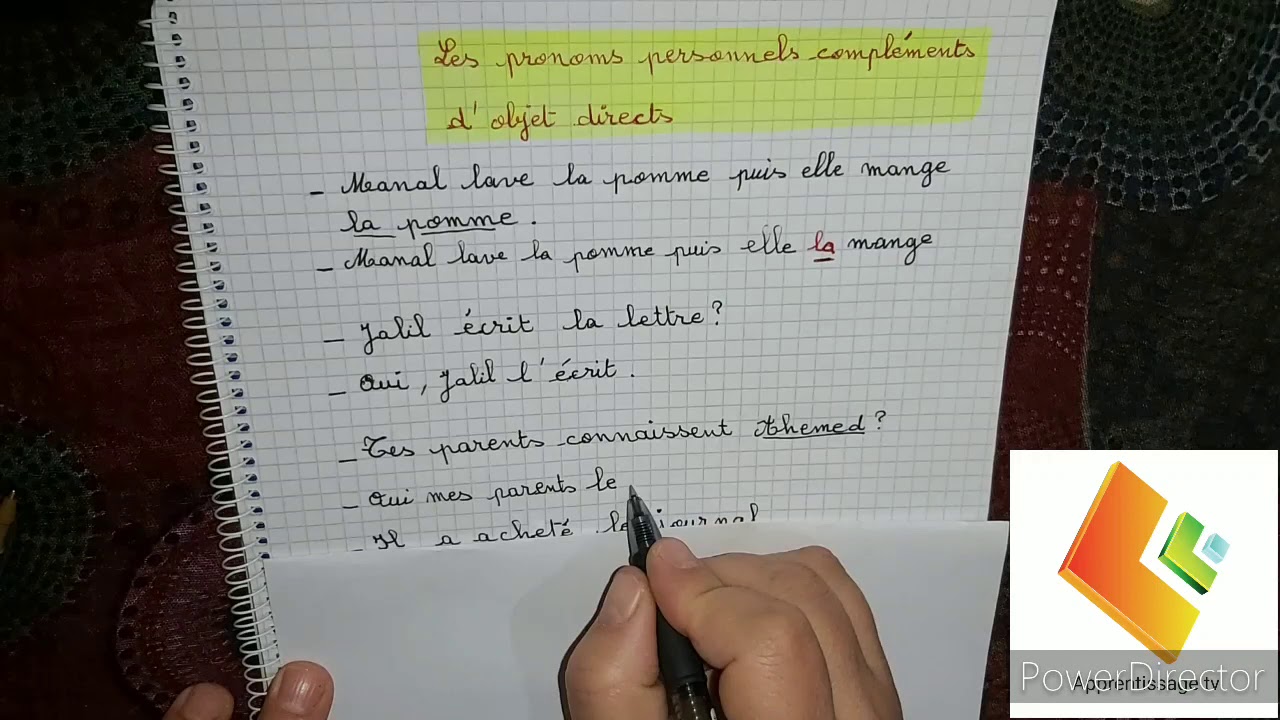 Les pronoms personnels compléments
d'objet directs
- Manal lave la pomme puis elle mange
la pomme.
- Manal lave la pomme puis elle la mange
- Jalil écrit la lettre?
- Oui, Jalil l'écrit.
- Tes parents connaissent Ahemed?
- Oui mes parents le
- Il a acheté le journal
PowerDirector
Apprentissage tv